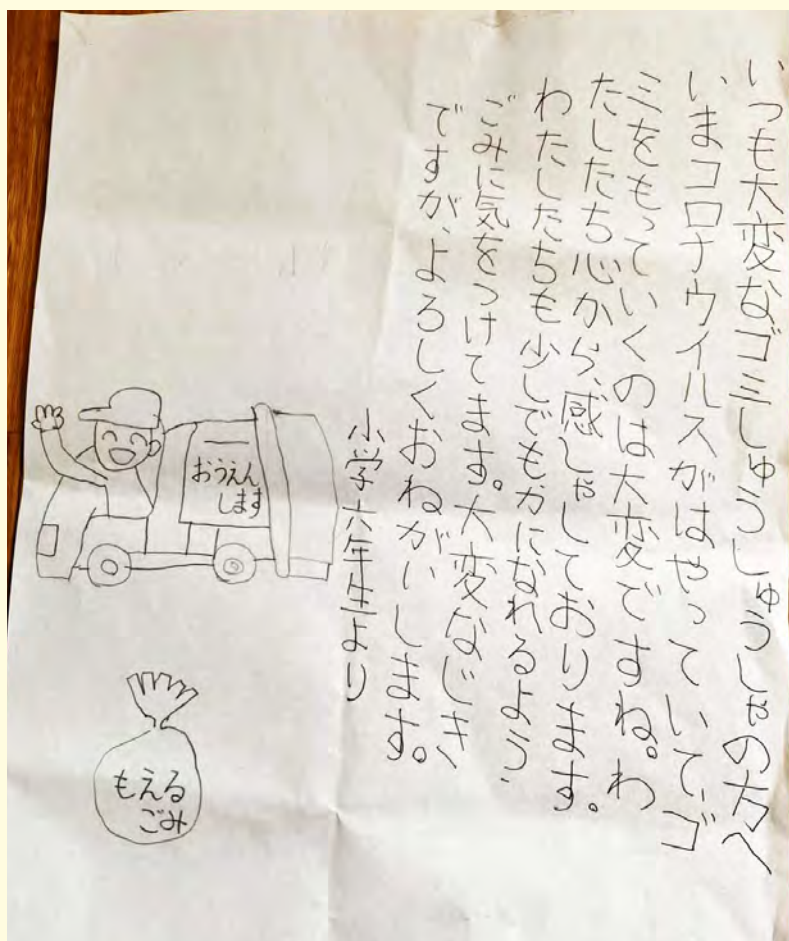 いつも大変なゴミしゅうしゅうしゃの方へ
いまコロナウイルスがはやっていて、ゴ
ミをもっていくのは大変ですね。わ
たしたち心から、感しゃしております。
わたしたちも少しでも力になれるよう
ごみに気をつけてます。大変なじき
ですが、よろしくおねがいします。
小学六年生より
おうえん
します
もえる
ごみ